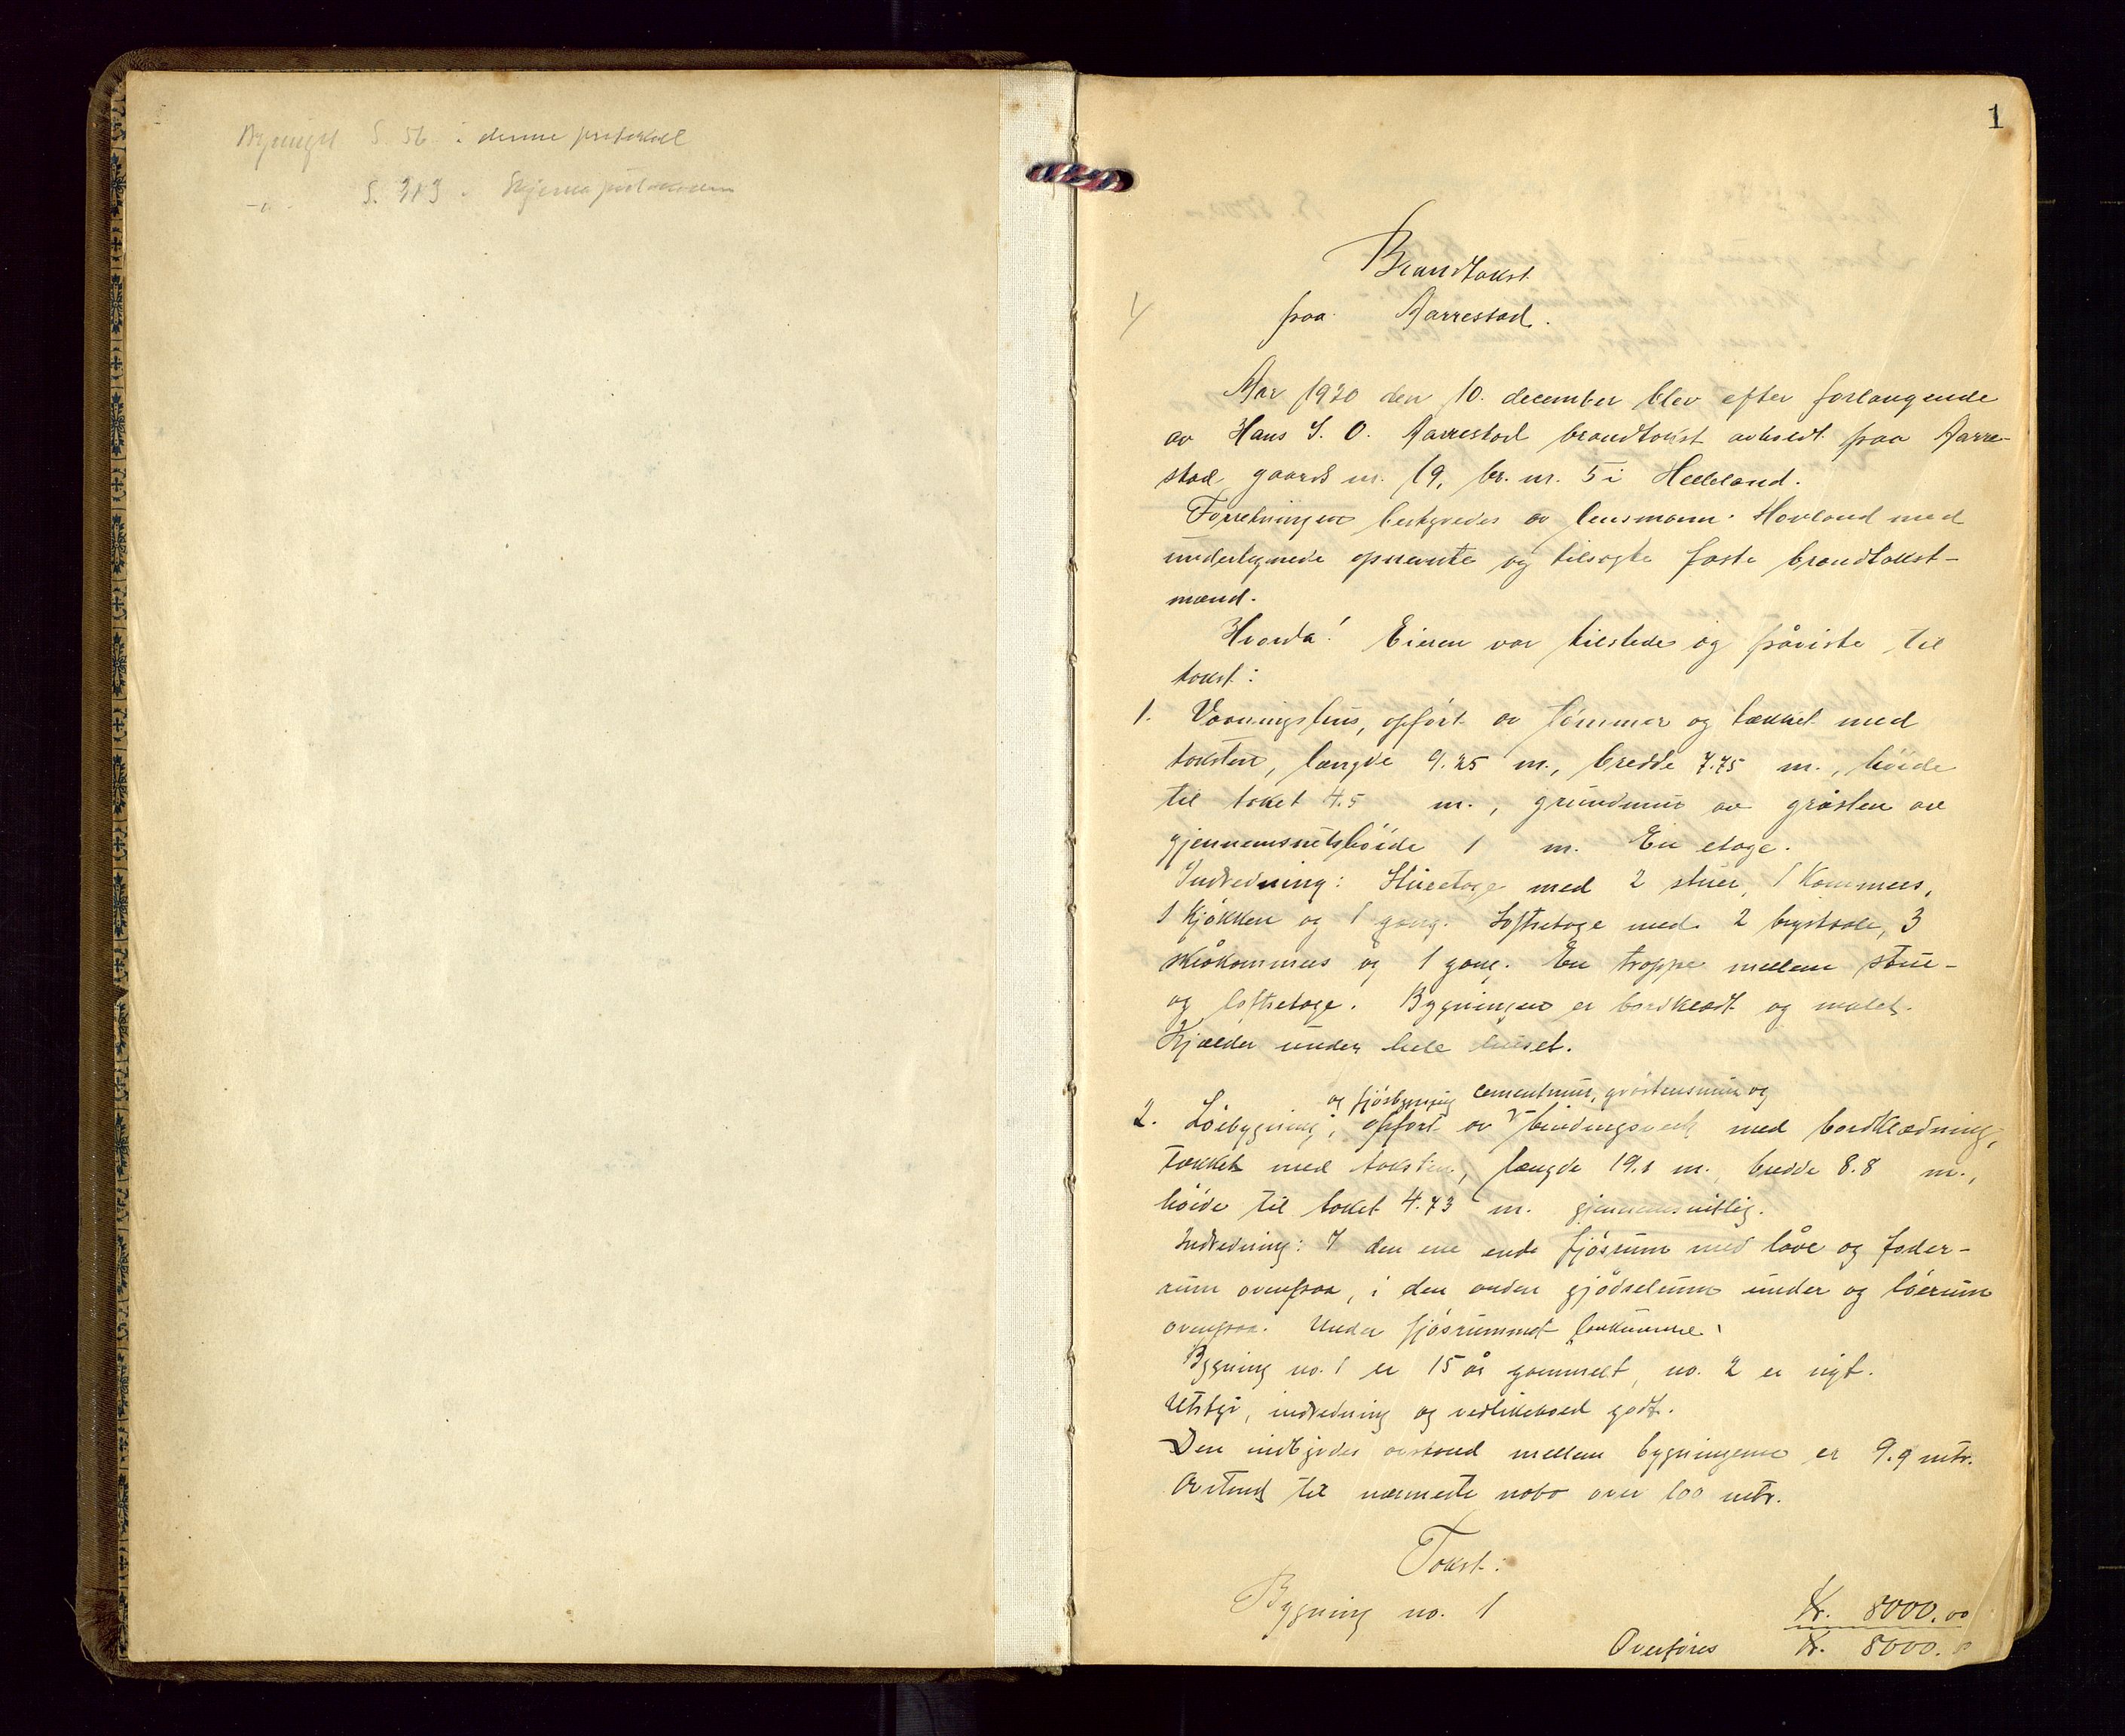 S. 56 i denne protokol
S. 383 i Skjemaprotokollen
1
Brandtakst
paa Aarrestad.
Aar 1920 den 10. december blev efter forlangende
av Hans S. O. Aarrestad brandtakst avholdt paa Aarre-
stad gaards nr. 19, br. nr. 5 i Helleland.
Forretningen bestyredes av lensmann Hovland med
undertegnede opnevnte og tilsagte faste brandtakst-
mænd.
Hvorda! Eieren var tilstede og påviste til
takst:
1. Vaaningshus, opført av tømmer og tækket med
taksten, længde 9.25 m., bredde 7.75 m., høide
til taket 4.5 m., grundmur av gråsten av
gjennemsnitshøide 1 m. En etage.
Indredning: Stueetage med 2 stuer, 1 kammers,
1 kjøkken og 1 gang. Loftsetage med 2 brystsale, 3
skråkammers og 1 gang. En trappe mellem stue-
og loftsetage. Bygningen er bordklædt og malet.
Kjælder under hele huset.
og fjøsbygning cementmur, gråstensmur og
2. Løebygning, opført av bindingsverk med bordklædning,
tækket med taksten, længde 19.1 m., bredde 8.8 m.,
høide til taket 4.73 m. gjennemsnitlig.
Indredning: I den ene ende fjøsrum med låve og foder-
rum ovenpaa, i den anden gjødselrum under og løerum
ovenpaa. Under fjøsrummet
Bygning no. 1 er 15 år gammelt, no. 2 er nyt.
Utstyr, indredning og vedlikehold godt.
Den indbyrdes avstand mellem bygningene er 9.9 mtr.
Avstand til nærmeste nabo over 100 mtr.
Takst:
Bygning no. 1 Kr. 8000.00
Overføres Kr. 8000.00